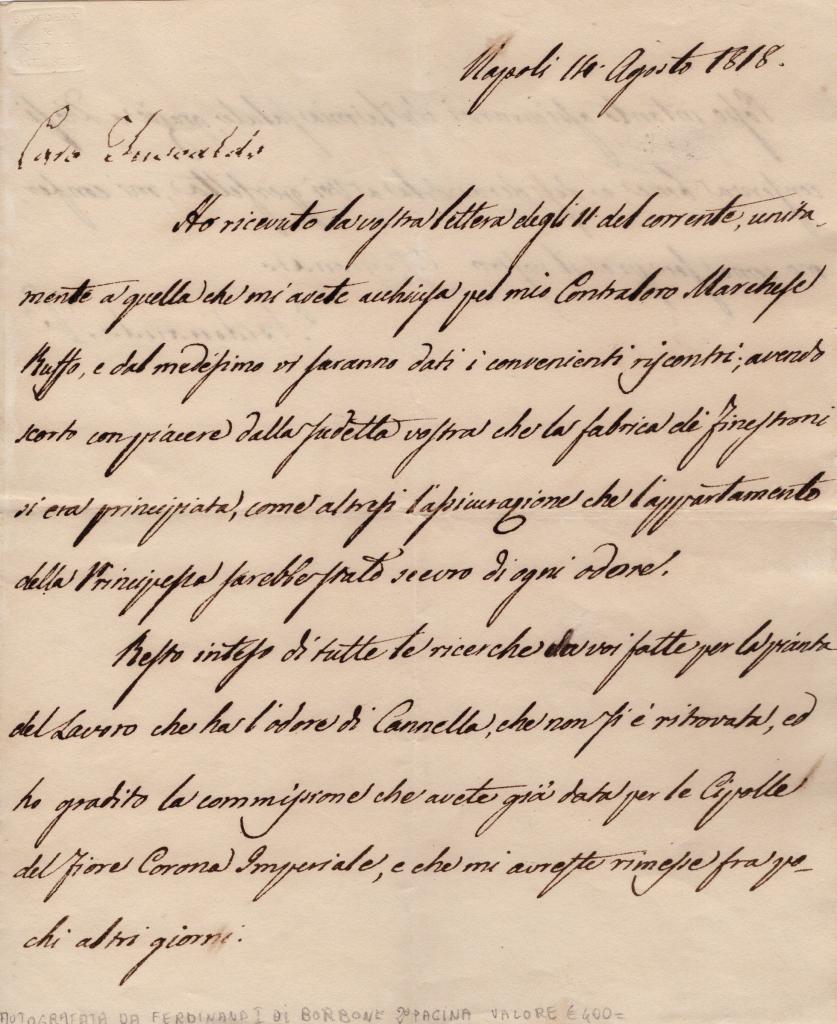 Napoli 14. Agosto 1818.
Caro
Ho ricevuto la vostra lettera degli 11. del corrente, unita-
mente a quella che mi avete acchiusa pel mio Contraloro Marchese
Ruffo, e dal medesimo vi saranno dati i convenienti riscontri; avendo
scorto con piacere dalla sudetta vostra che la fabrica de' finestroni
si era principiata, come altresi l'assicuragione che l'appartamento
della Principessa sarebbe stato scevro di ogni odore.
Resto inteso di tutte le ricerche da voi fatte per la pianta
del Lavoro che ha l'odore di Cannella, che non si è ritrovata, ed
ho gradito la commissione che avete già data per le Cipolle
del fiore Corona Imperiale, e che mi avreste rimesse fra po-
chi altri giorni.
AUTOGRAFATA DA FERDINAND I DI BORBONE 2ª PAGINA VALORE € 400=